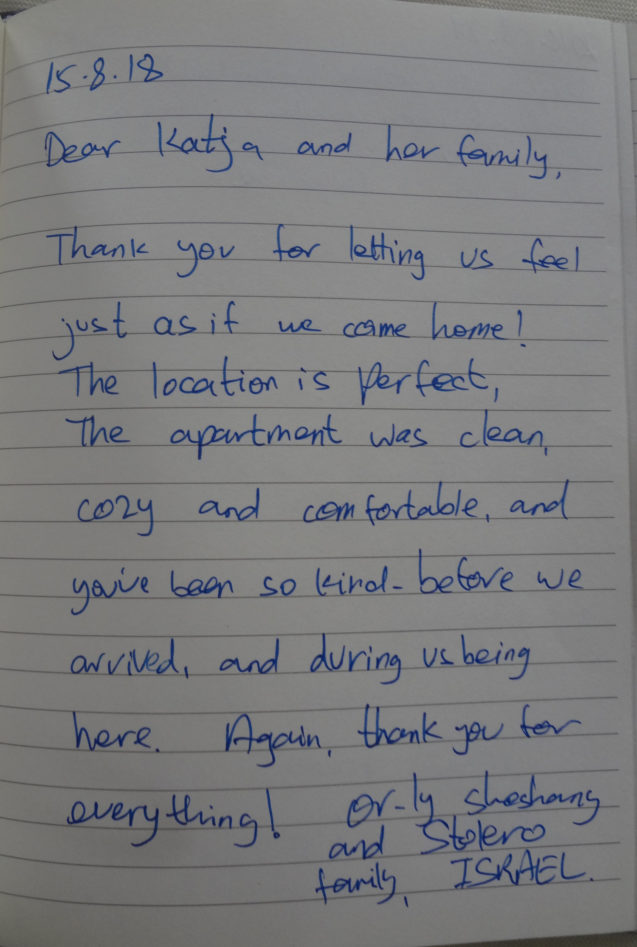 15.8.18
Dear Katja and her family,
Thank you for letting us feel
just as if we came home!
The location is perfect,
The apartment was clean,
cozy and comfortable, and
you've been so kind - before we
arrived, and during us being
here. Again, thank you for
everything! Or-ly
and Stolero
family, ISRAEL.